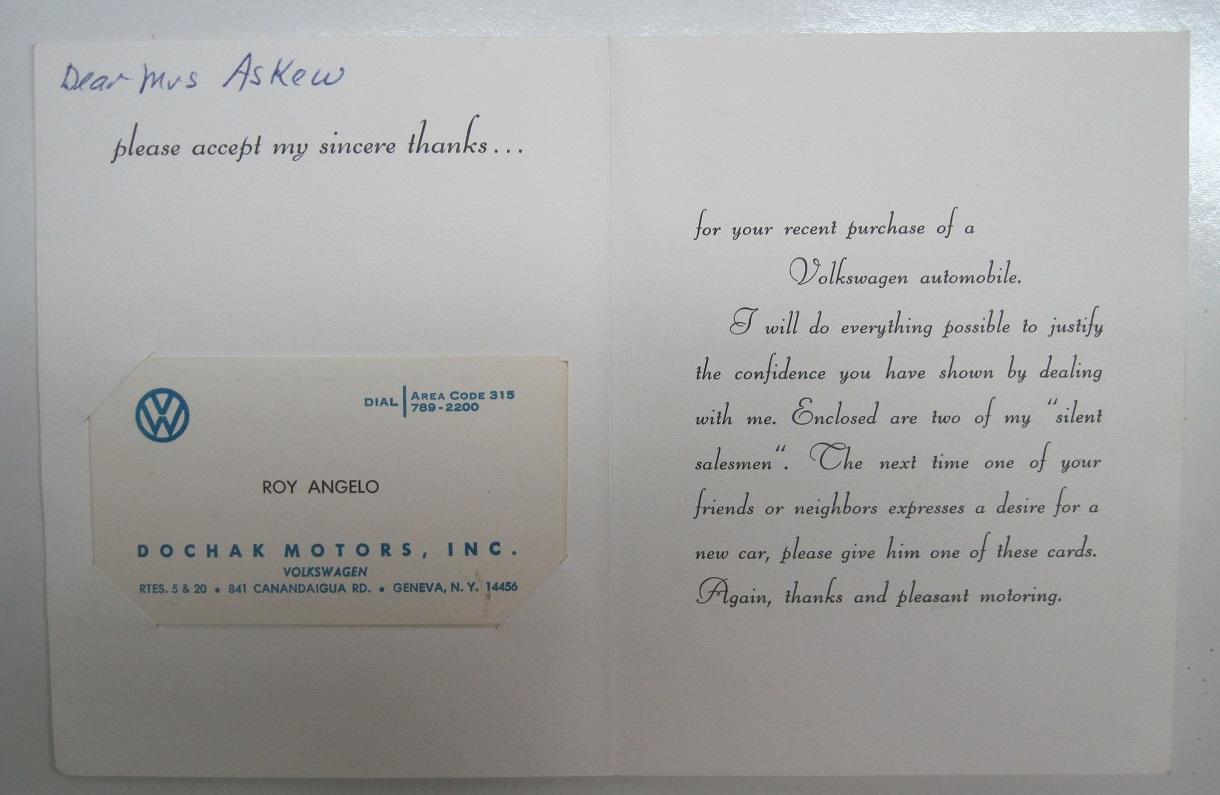 Dear Mrs Askew
please accept my sincere thanks...
DIAL AREA CODE 315
789-2200
ROY ANGELO
DOCHAK MOTORS, INC.
VOLKSWAGEN
RTES. 5 & 20 • 841 CANANDAIGUA RD. • GENEVA, N. Y. 14456
for your recent purchase of a
Volkswagen automobile.
I will do everything possible to justify
the confidence you have shown by dealing
with me. Enclosed are two of my "silent
salesmen". The next time one of your
friends or neighbors expresses a desire for a
new car, please give him one of these cards.
Again, thanks and pleasant motoring.